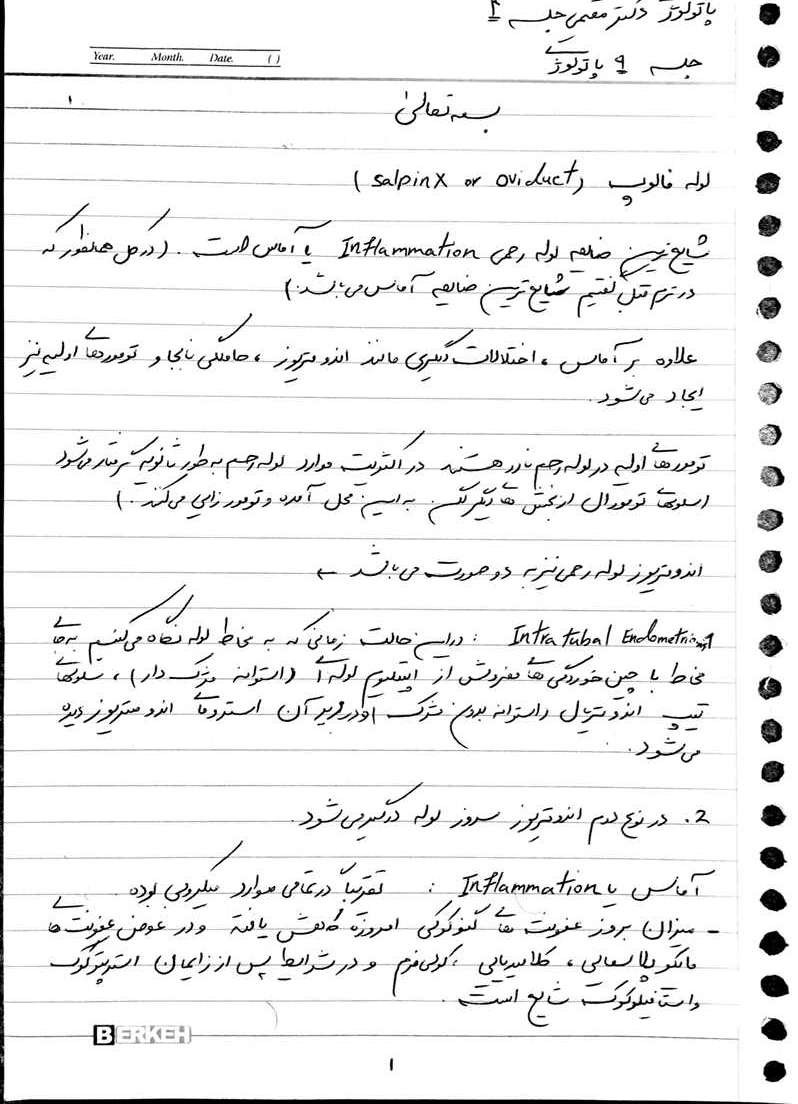 پاتولوژی دکتر مقیمی جلسه 1
Year. Month. Date. ( )
جلسه 9 پاتولوژی
بسمه تعالی
1
لوله فالوپ (salpinx or oviduct)
شایع‌ترین ضایعه لوله رحمی Inflammation یا آماس است. (در کل همانطور که
در ترم قبل گفتیم شایع‌ترین ضایعه آماس می‌باشد.)
علاوه بر آماس، اختلالات دیگری مانند اندومتریوز، حاملگی نابجا و تومورهای اولیه نیز
ایجاد می‌شود.
تومورهای اولیه در لوله رحم نادر هستند در اکثریت موارد لوله رحم به طور ثانویه گرفتار می‌شود
(سلولهای تومورال از بخش های دیگر به این محل آمده و تومورزایی می‌کند.)
اندومتریوز لوله رحمی نیز به دو صورت می‌باشد ←
1. Intratubal Endometriosis : در این حالت زمانی که به مخاط لوله نگاه می‌کنیم به جای
مخاط با چین خوردگی های مفروش از اپیتلیوم لوله‌ای (استوانه مژک دار)، سلولهای
تیپ اندومتریال (استوانه بدون مژک) و در زیر آن استرومای اندومتریوز دیده
می‌شود.
2. در نوع دوم اندومتریوز سروز لوله درگیر می‌شود.
آماس یا Inflammation : تقریباً در تمامی موارد میکروبی بوده.
- میزان بروز عفونت های گنوکوکی امروزه کاهش یافته و در عوض عفونت های
مایکوپلاسمایی، کلامیدیایی، کولی‌فرم و در شرایط پس از زایمان استرپتوکوک
و استافیلوکوک شایع است.
BERKEH
1